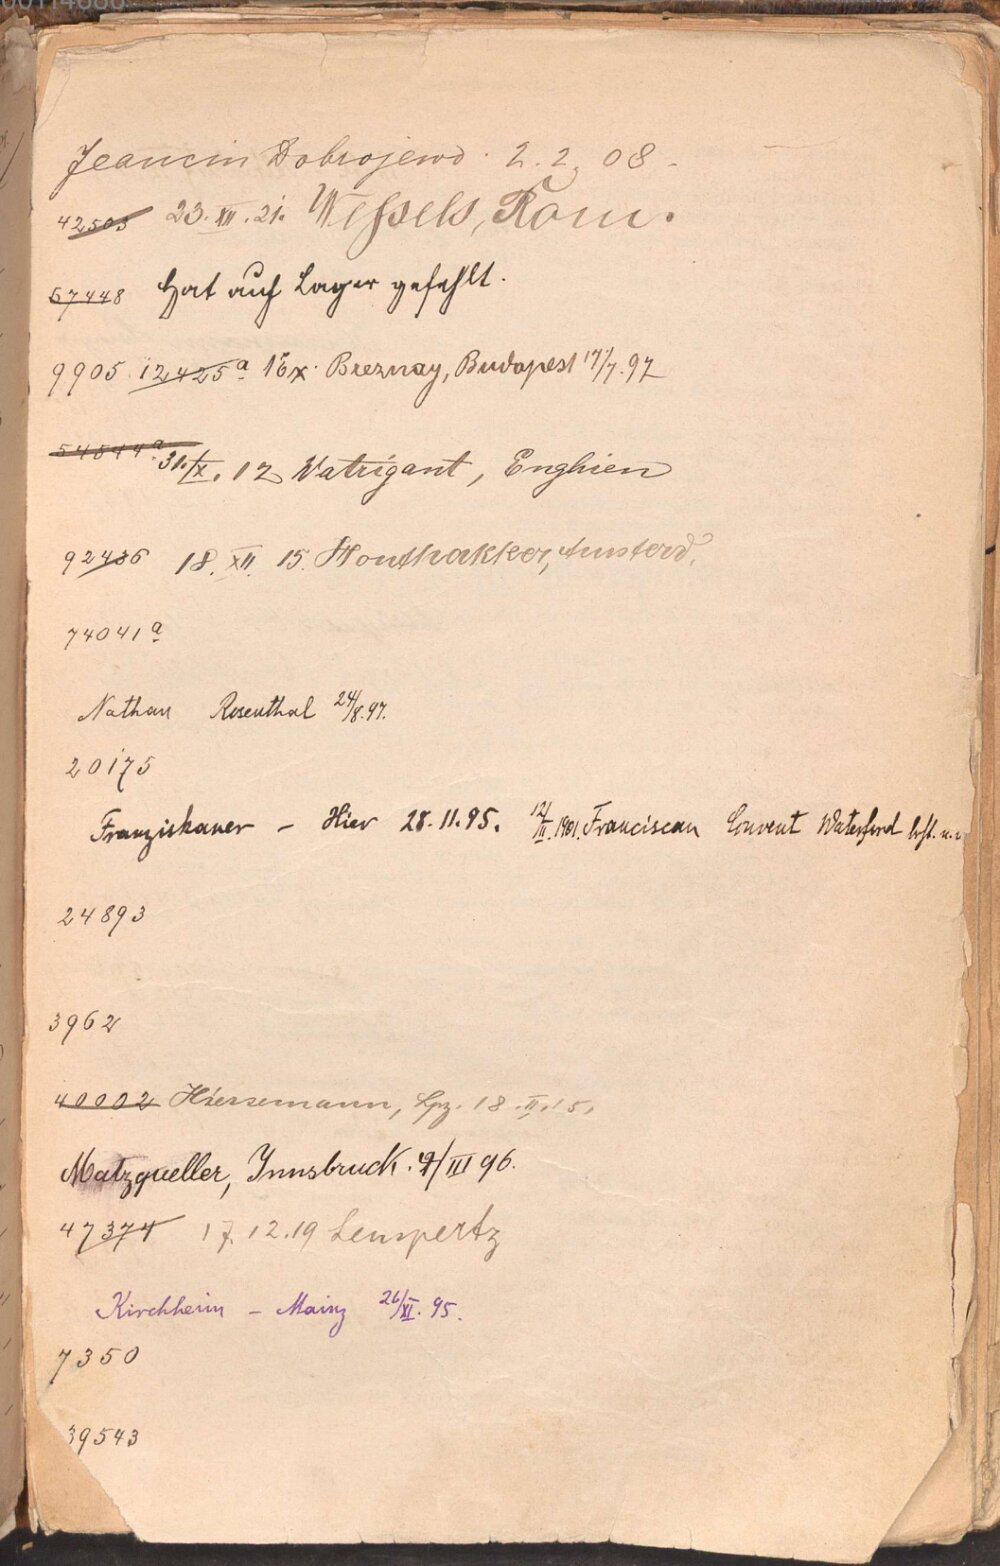 Jeancin Dobrojewo. 2.2.08.
42503 23.XII.21. Wessels, Rom.
57448 Hat auf Lager gefehlt.
9905 12425a Breznay, Budapest 17/7.97
54544a 31./X.12 Watrigant, Enghien
92436 18.XII.15. Houthakker, Amsterd.
74041a
Nathan Rosenthal 24/8.97.
20175
Franziskaner – Hier 28.11.95. 12/III.1901. Franciscan Convent Waterford
24893
3962
40002 Hiersemann, Lpz. 18.II.15.
Matzgueller, Innsbruck. 9/III 96.
47374 17.12.19 Lempertz
Kirchheim – Mainz 26/XI.95.
7350
39543